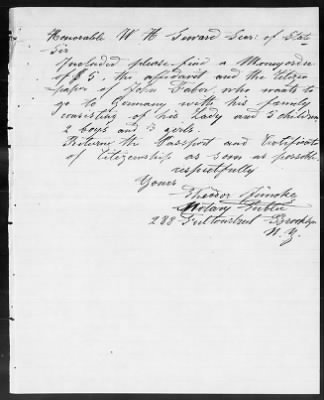 Honorable W H Seward Secr: of State
Sir
Included please find a Moneyorder
of $5, the affidavit and the Citizen
paper of John Tabor, who wants to
go to Germany with his family
consisting of his Lady and 5 children
2 boys and 3 girls.
Return the Passport and Certificate
of Citizenship as soon as possible.
respectfully
Yours
Theodor
Notary Public
288 Fultonstreet Brooklyn
N. Y.